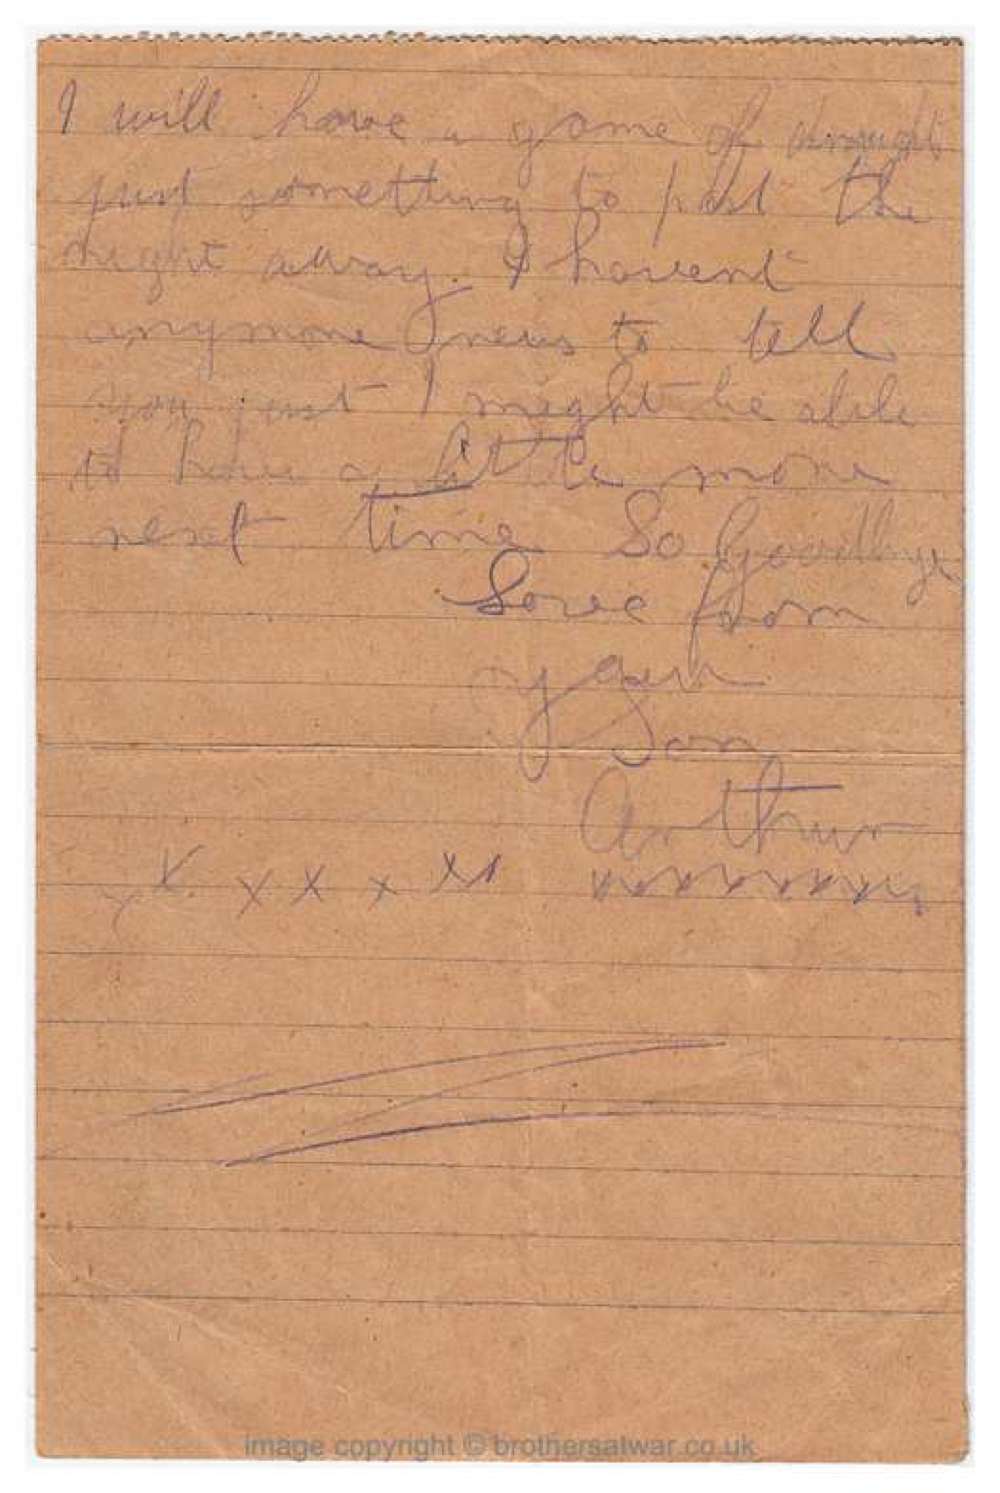 I will have a game of draught
just something to past the
night away. I havent
anymore news to tell
you just I might be able
to have a little more
next time So Goodbye
Love from
your
Son
Arthur
x x x x x x x xxxxxxxxx
image copyright © brothersatwar.co.uk